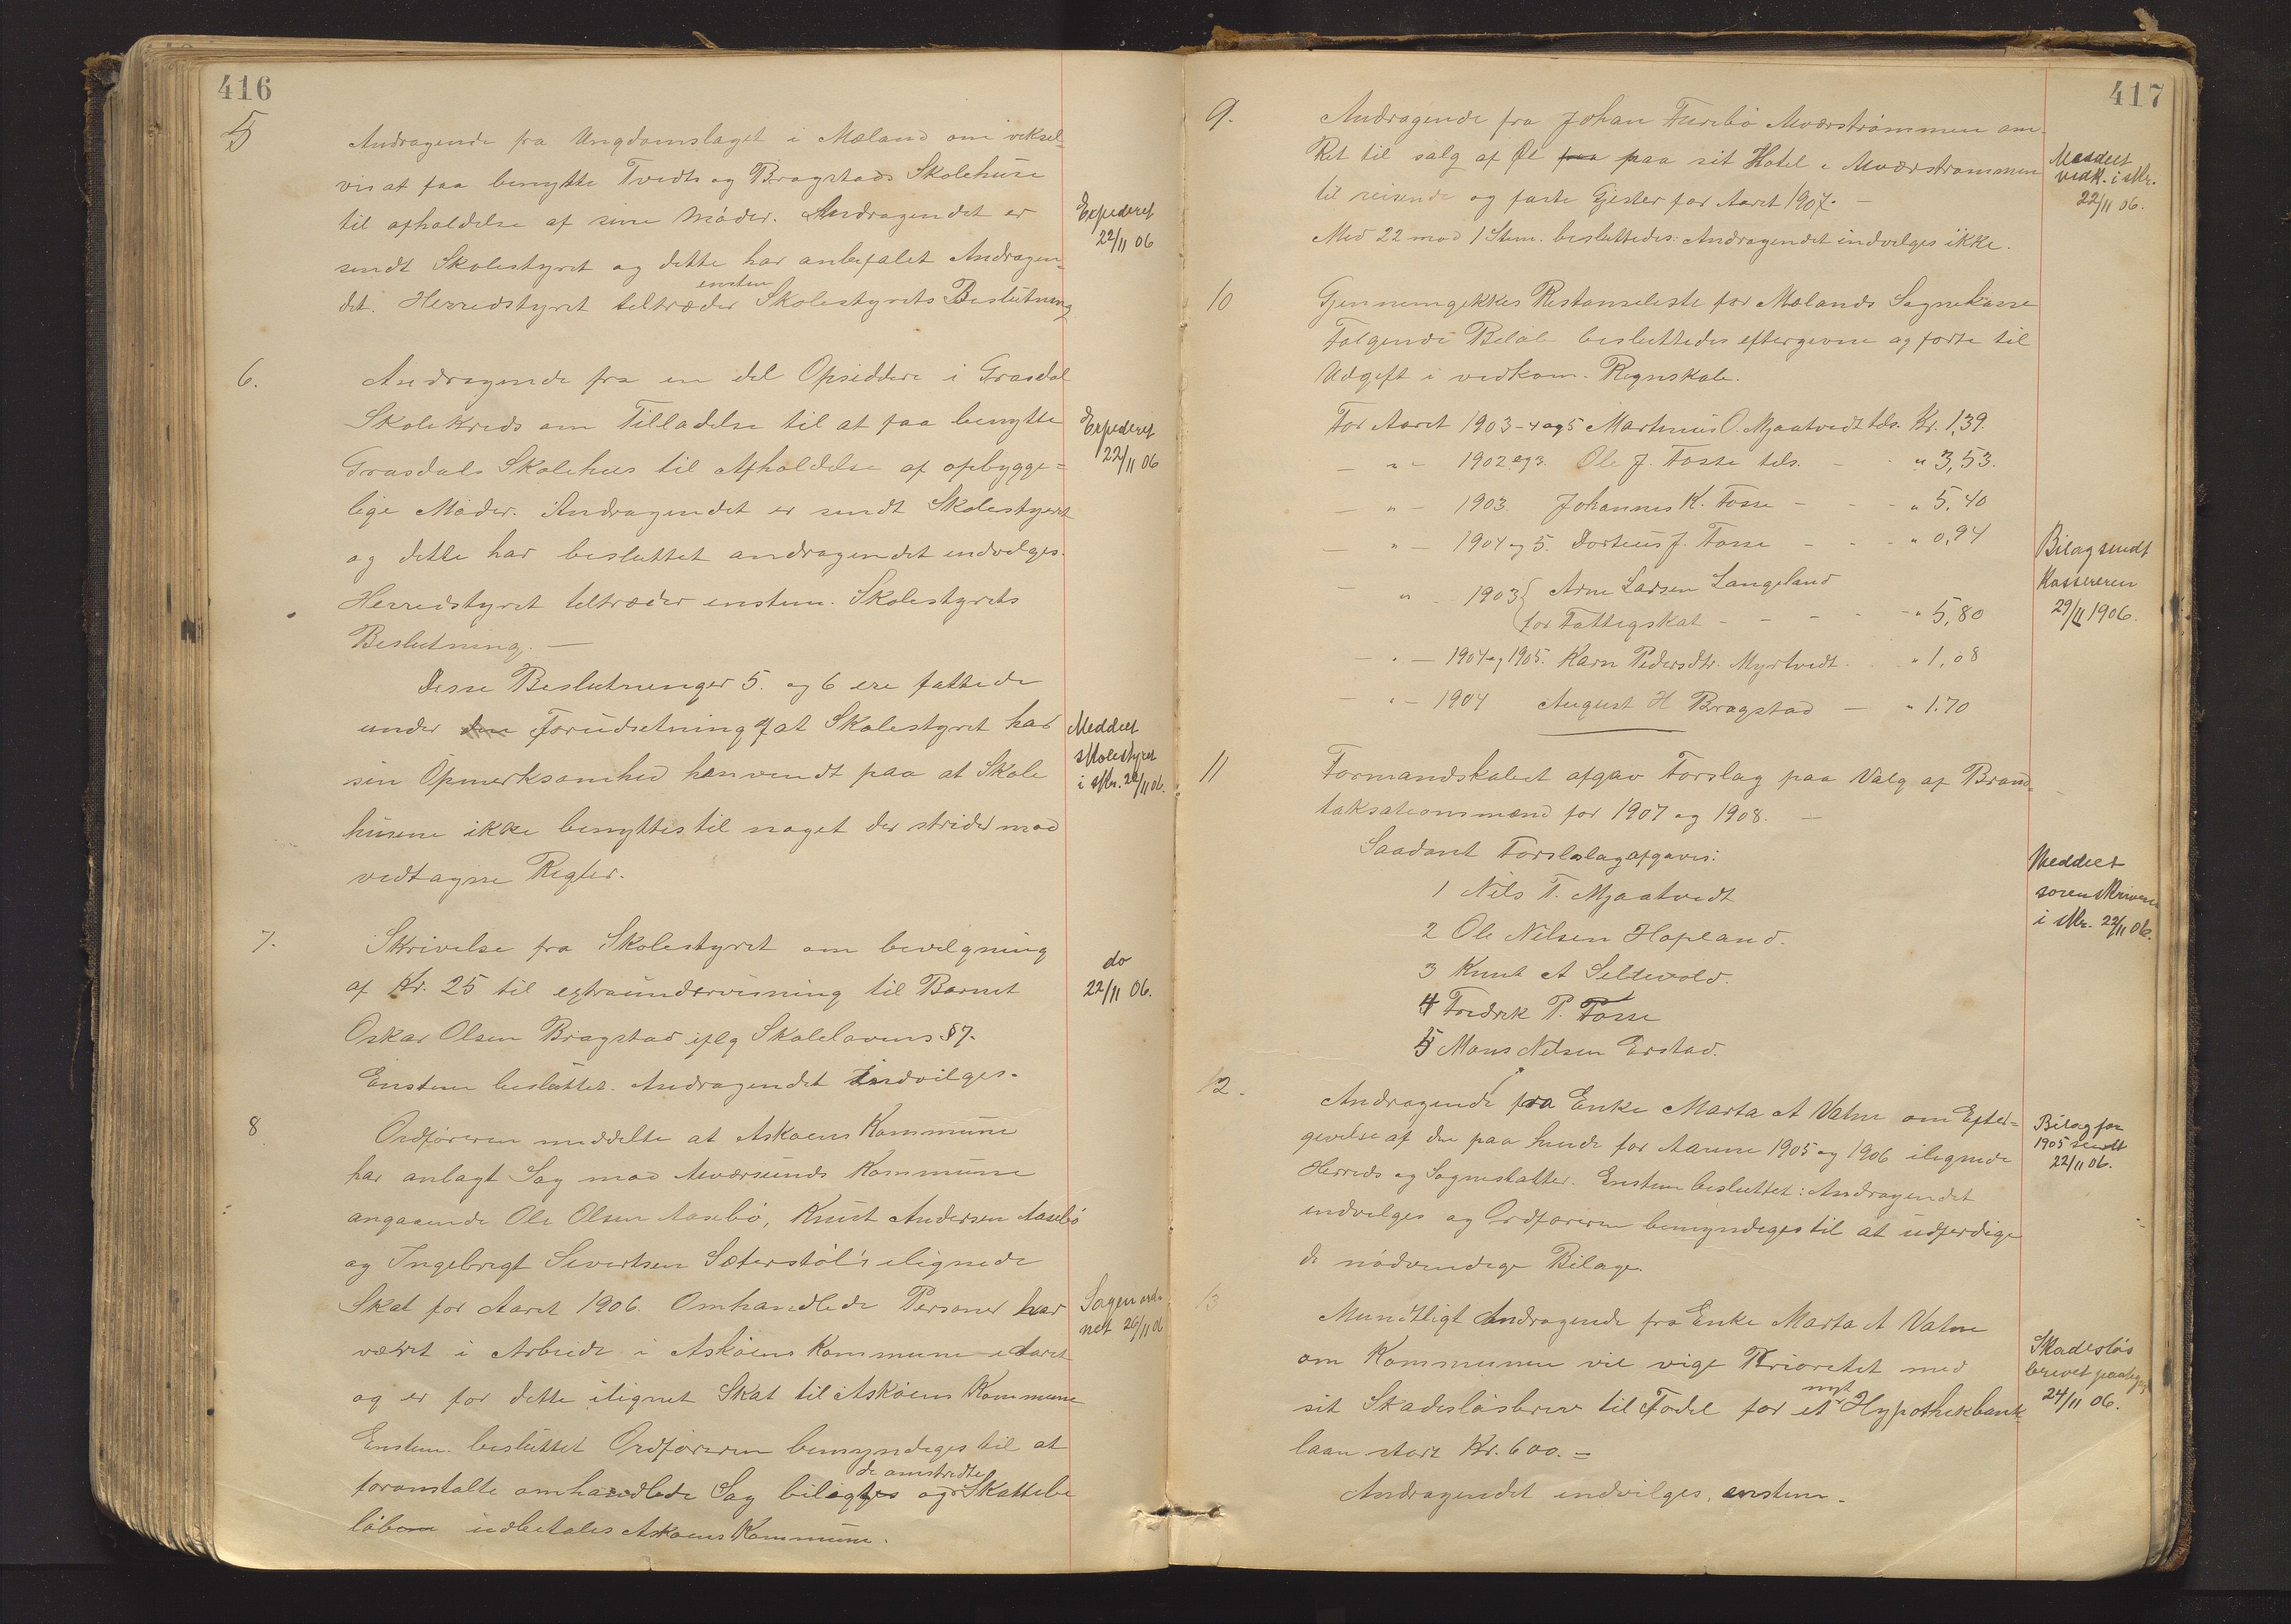 416
5
Andragende fra Ungdomslaget i Mæland om veksel-
vis at faa benytte Tvedts og Bragstads Skolehuse
til afholdelse af sine Möder. Andragendet er
sendt Skolestyret og dette har anbefalet Andragen-
det. Herredstyret tiltræder enstem Skolestyrets Beslutning
Expederet
22/11 06
6.
Andragende fra en del Opsiddere i Grasdal
Skolekreds om Tilladelse til at faa benytte
Grasdals Skolehus til Afholdelse af opbygge=
lige Möder. Andragendet er sendt Skolestyret
og dette har besluttet andragendet indvilges.
Herredstyret tiltræder enstem. Skolestyrets
Beslutning. —
Expederet
22/11 06
Disse Beslutninger 5. og 6 ere fattede
under den Forudsetning af at Skolestyret har
sin Opmerksomhed henvendt paa at Skole
husene ikke benyttes til noget der strider mod
vedtagne Regler.
Meddelt
skolestyret
i skr. 22/11 06.
7.
Skrivelse fra Skolestyret om bevilgning
af Kr. 25 til extraundervisning til Barnet
Oskar Olsen Bragstad iflg Skolelovens §7.
Enstem besluttet. Andragendet indvilges.
do
22/11 06.
8
Ordföreren meddelte at Askoens Kommune
har anlagt Sag mod Alværsunds Kommune
angaaende Ole Olsen Aasebö, Knut Andersen Aasebö
og Ingebrigt Sivertsen Sæterstöl's ilignede
Skat for Aaret 1906. Omhandlede Personer har
været i Arbeide i Asköens Kommune i Aaret
og er for dette ilignet Skat til Asköens Kommune
Enstem. besluttet Ordföreren bemyndiges til at
foranstalte omhandlede Sag biligges og de omstridte Skattebe
löbene udbetales Askoens Kommune.
Sagen ord-
net 26/11 06
417
9.
Andragende fra Johan Furebö Alværströmmen om
Ret til salg af Öl fra paa sit Hotel i Alværströmmen
til reisende og faste Gjester for Aaret 1907. —
Med 22 mod 1 Stem. besluttedes: Andragendet indvilges ikke.
Meddelt
vedk. i skr.
22/11 06.
10
Gjennemgikkes Restanseliste for Mælands Sognekasse
Følgende Belöb besluttedes eftergivne og förte til
Udgift i vedkom. Regnskab.
For Aaret 1903-4 og 5 Martinus O. Mjaatvedt tds. Kr. 1,39.
— " — 1902 og 3. Ole J. Fosse tds. — " 3,53.
— " — 1903. Johannes K. Fosse — — " 5,40
— " — 1904 og 5. Dorteus J. Fosse — — " 0,94
— " — 1903 { Arne Larsen Langeland
for Fattigskat — — — " 5,80
— " — 1904 og 1905. Karn Pedersdtr. Myrtvedt. " 1,08
— " — 1904 August H Bragstad — " 1.70
Bilag sendt
Kassereren
29/11 1906.
11
Formandskabet afgav Forslag paa Valg af Brand-
taksationsmænd for 1907 og 1908. —
Saadant Forslag afgaves:
1 Nils T. Mjaatvedt
2 Ole Nilsen Hopland.
3 Knut A Seldevold.
4 Fredrik P. Fosse
5 Mons Nilsen Erstad.
Meddelt
sorenskriveren
i skr. 22/11 06.
12.
Andragende fra Enke Marta A Vatne om Efter=
givelse af den paa hende for Aarene 1905 og 1906 ilignede
Herreds og Sogneskatter. Enstem besluttet: Andragendet
indvilges og Ordföreren bemyndiges til at udferdige
de nödvendige Bilage.
Bilag for
1905 sendt
22/11 06.
13
Mundtligt Andragende fra Enke Marta A Vatne
om Kommunen vil vige Prioritet med
sit Skadeslösbrev til Fodel for et nyt Hypothekbank
laan stort Kr. 600. =
Andragendet indvilges, enstem.
Skadeslös
brevet paateg.
24/11 06.